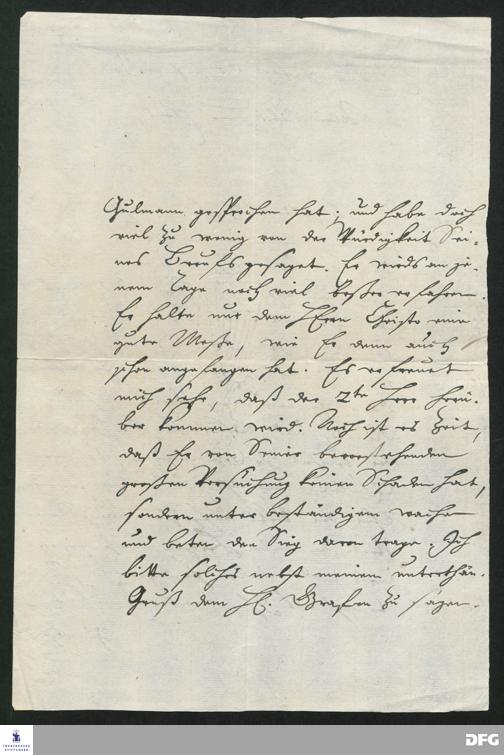 Gulmann gesprochen hat; und habe doch
viel zu wenig von der Würdigkeit Sei-
nes Berufs gesaget. Er wirds an je-
nem Tage noch viel besser erfahren.
Er halte nur dem HErrn Christo eine
gute Messe, wie Er denn auch
schon angefangen hat. Es erfreuet
mich sehr, daß der 2te Herr herü-
ber kommen wird. Noch ist es Zeit,
daß Er von Seiner bevorstehenden
großen Versuchung keinen Schaden hat,
sondern unter beständigem wachen
und beten den Sieg davon trage. Ich
bitte solches nebst meinem unterthän.
Gruß dem H. Grafen zu sagen.
FRANCKESCHE
STIFTUNGEN
DFG